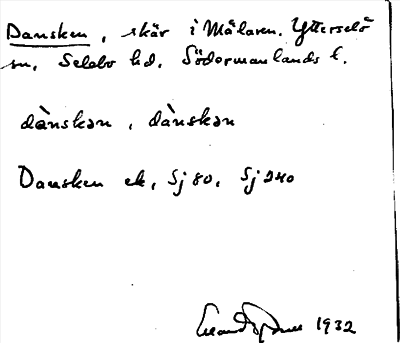 Dansken, skär i Mälaren. Ytterselö
sn, Selebo hd, Södermanlands l.
dànskən, dànskən
Dansken ek, Sj 80, Sj 240
1932